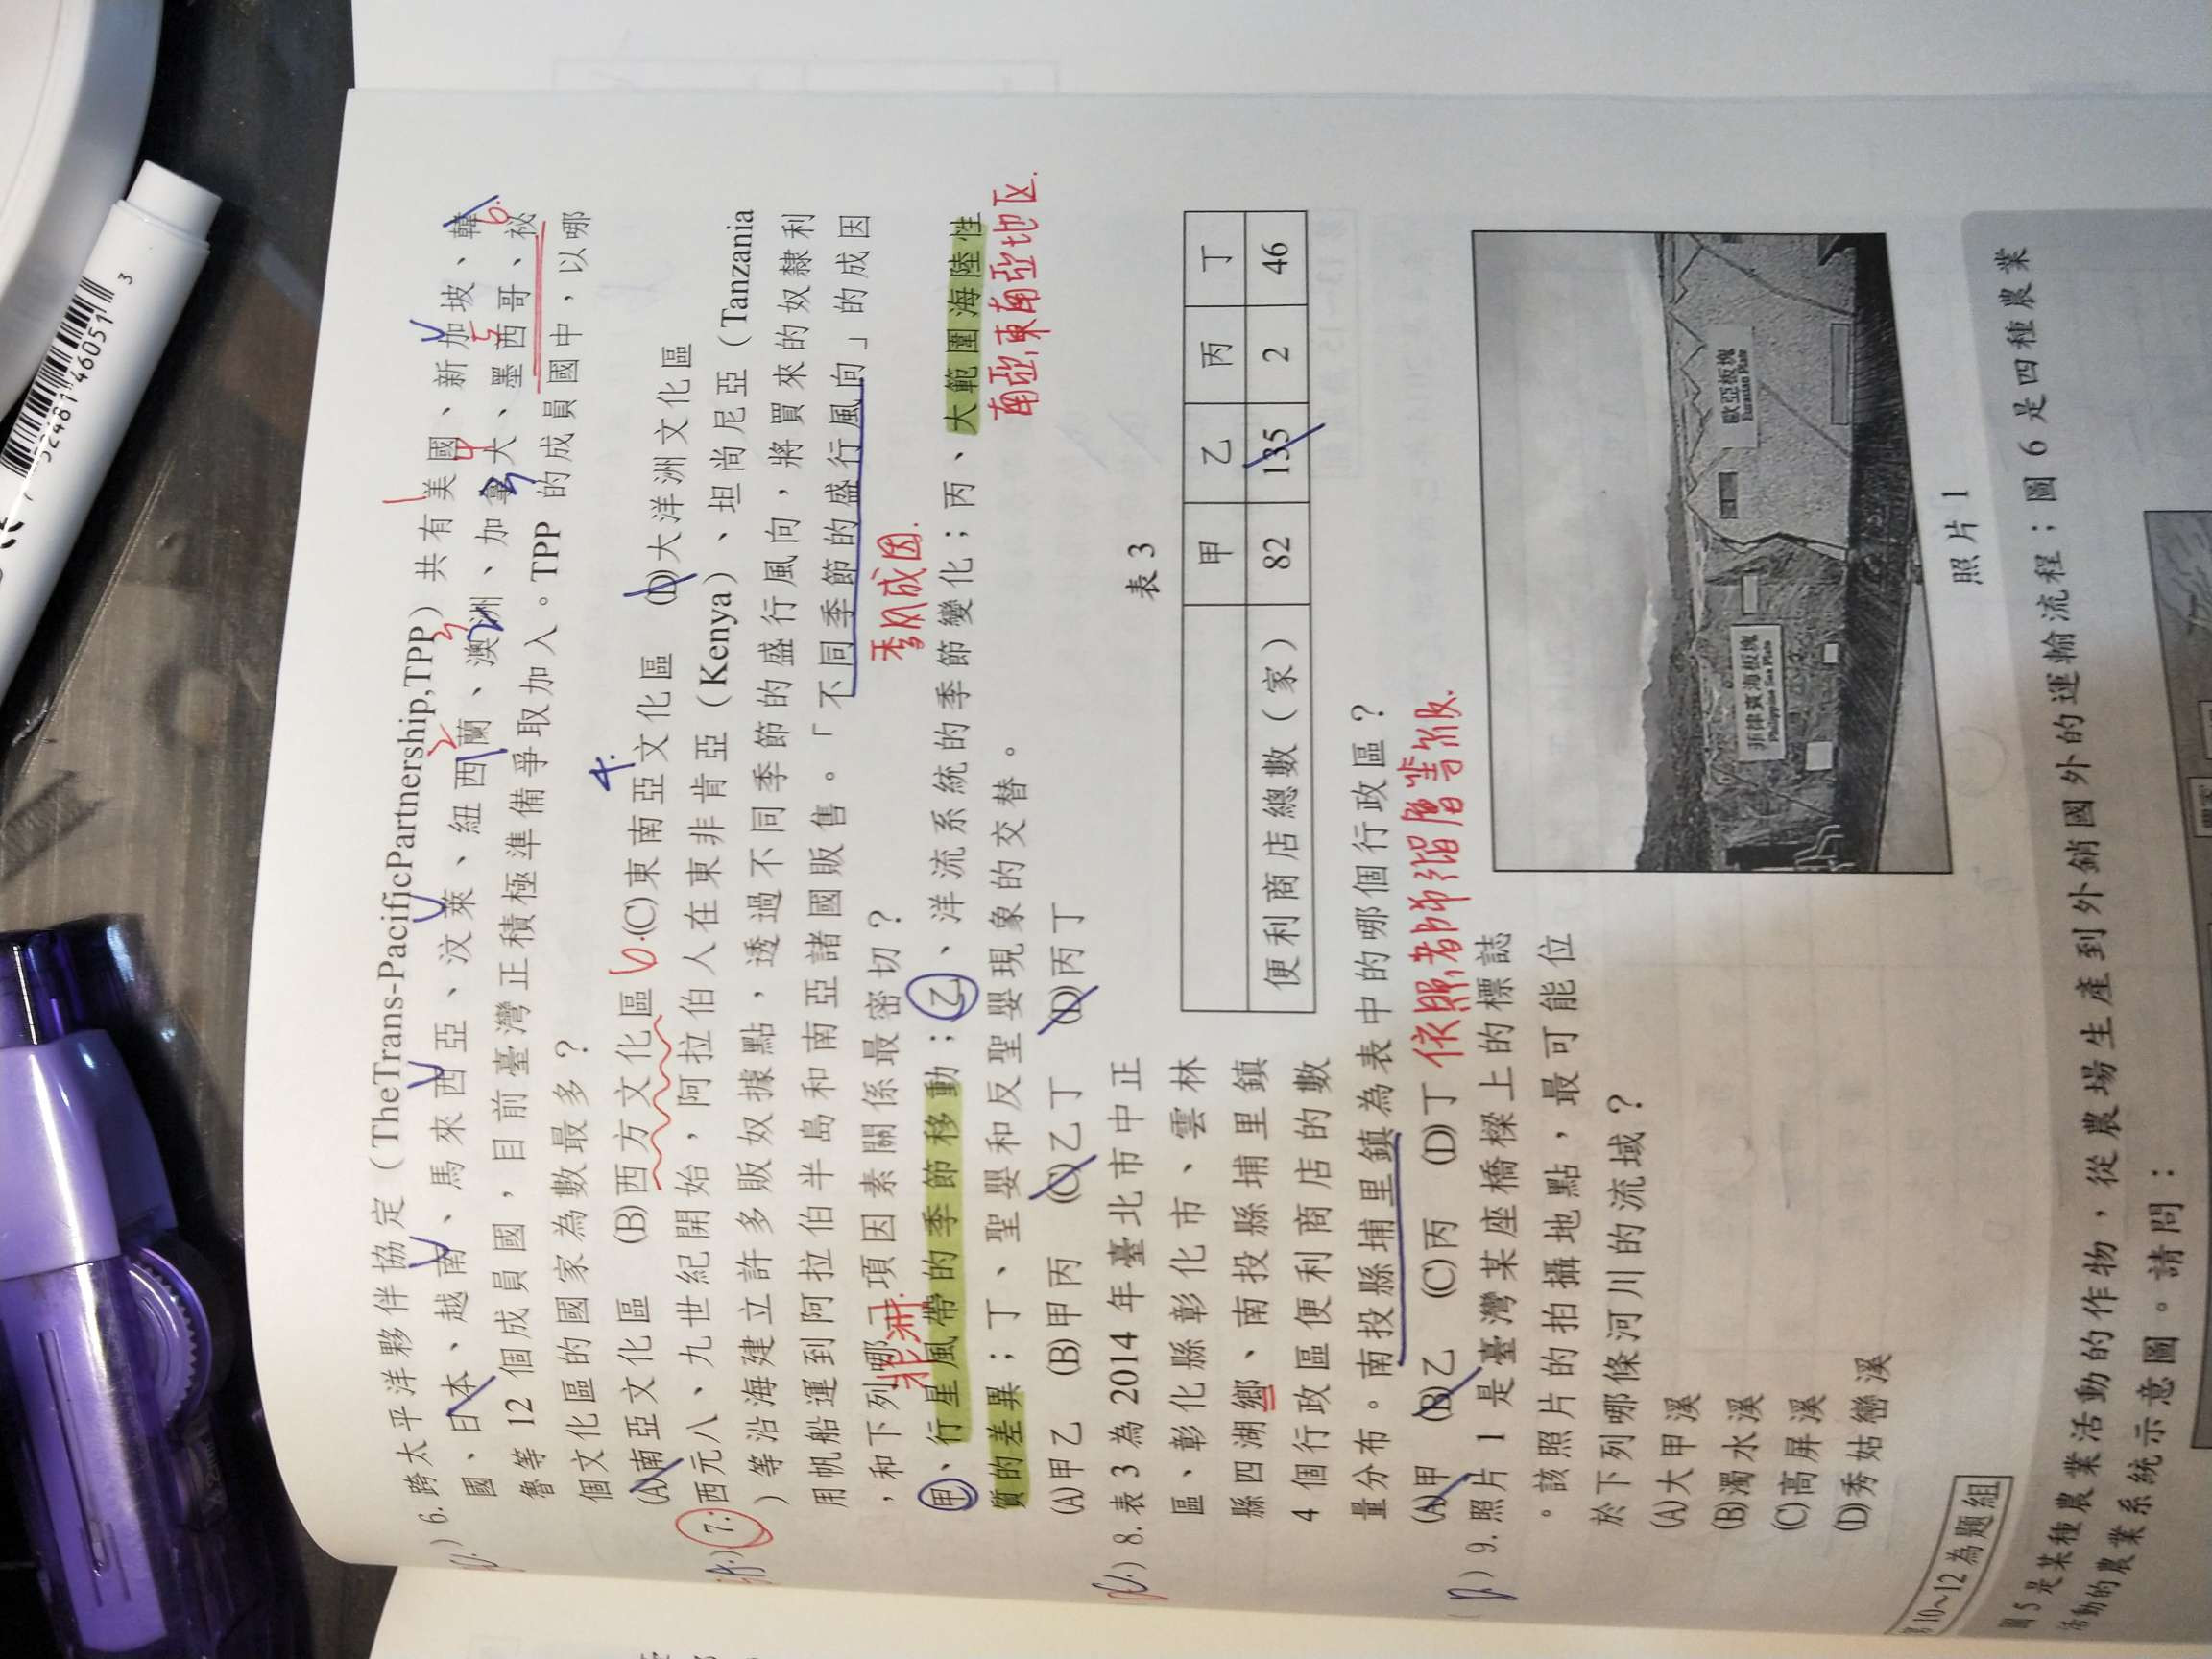 6.跨太平洋夥伴協定（TheTrans-PacificPartnership,TPP）共有美國、新加坡、韓
國、日本、越南、馬來西亞、汶萊、紐西蘭、澳洲、加拿大、墨西哥、祕
魯等 12 個成員國，目前臺灣正積極準備爭取加入。TPP 的成員國中，以哪
個文化區的國家為數最多？
(A)南亞文化區 (B)西方文化區 6.(C)東南亞文化區 4. (D)大洋洲文化區
7.西元八、九世紀開始，阿拉伯人在東非肯亞（Kenya）、坦尚尼亞（Tanzania
）等沿海建立許多販奴據點，透過不同季節的盛行風向，將買來的奴隸利
用帆船運到阿拉伯半島和南亞諸國販售。「不同季節的盛行風向」的成因
，和下列哪二項因素關係最密切？
季風成因.
非洲.
甲、行星風帶的季節移動；乙、洋流系統的季節變化；丙、大範圍海陸性
南亞,東南亞地区.
質的差異；丁、聖嬰和反聖嬰現象的交替。
(A)甲乙 (B)甲丙 (C)乙丁 (D)丙丁
8.表 3 為 2014 年臺北市中正
區、彰化縣彰化市、雲林
縣四湖鄉、南投縣埔里鎮
4 個行政區便利商店的數
量分布。南投縣埔里鎮為表中的哪個行政區？
表 3
甲 乙 丙 丁
便利商店總數（家） 82 135 2 46
(A)甲 (B)乙 (C)丙 (D)丁
9.照片 1 是臺灣某座橋樑上的標誌
。該照片的拍攝地點，最可能位
於下列哪條河川的流域？
(A)大甲溪
(B)濁水溪
(C)高屏溪
(D)秀姑巒溪
菲律賓海板塊
Philippine Sea Plate
歐亞板塊
Eurasian Plate
照片 1
第 10~12 為題組
圖 5 是某種農業活動的作物，從農場生產到外銷國外的運輸流程；圖 6 是四種農業
活動的農業系統示意圖。請問：